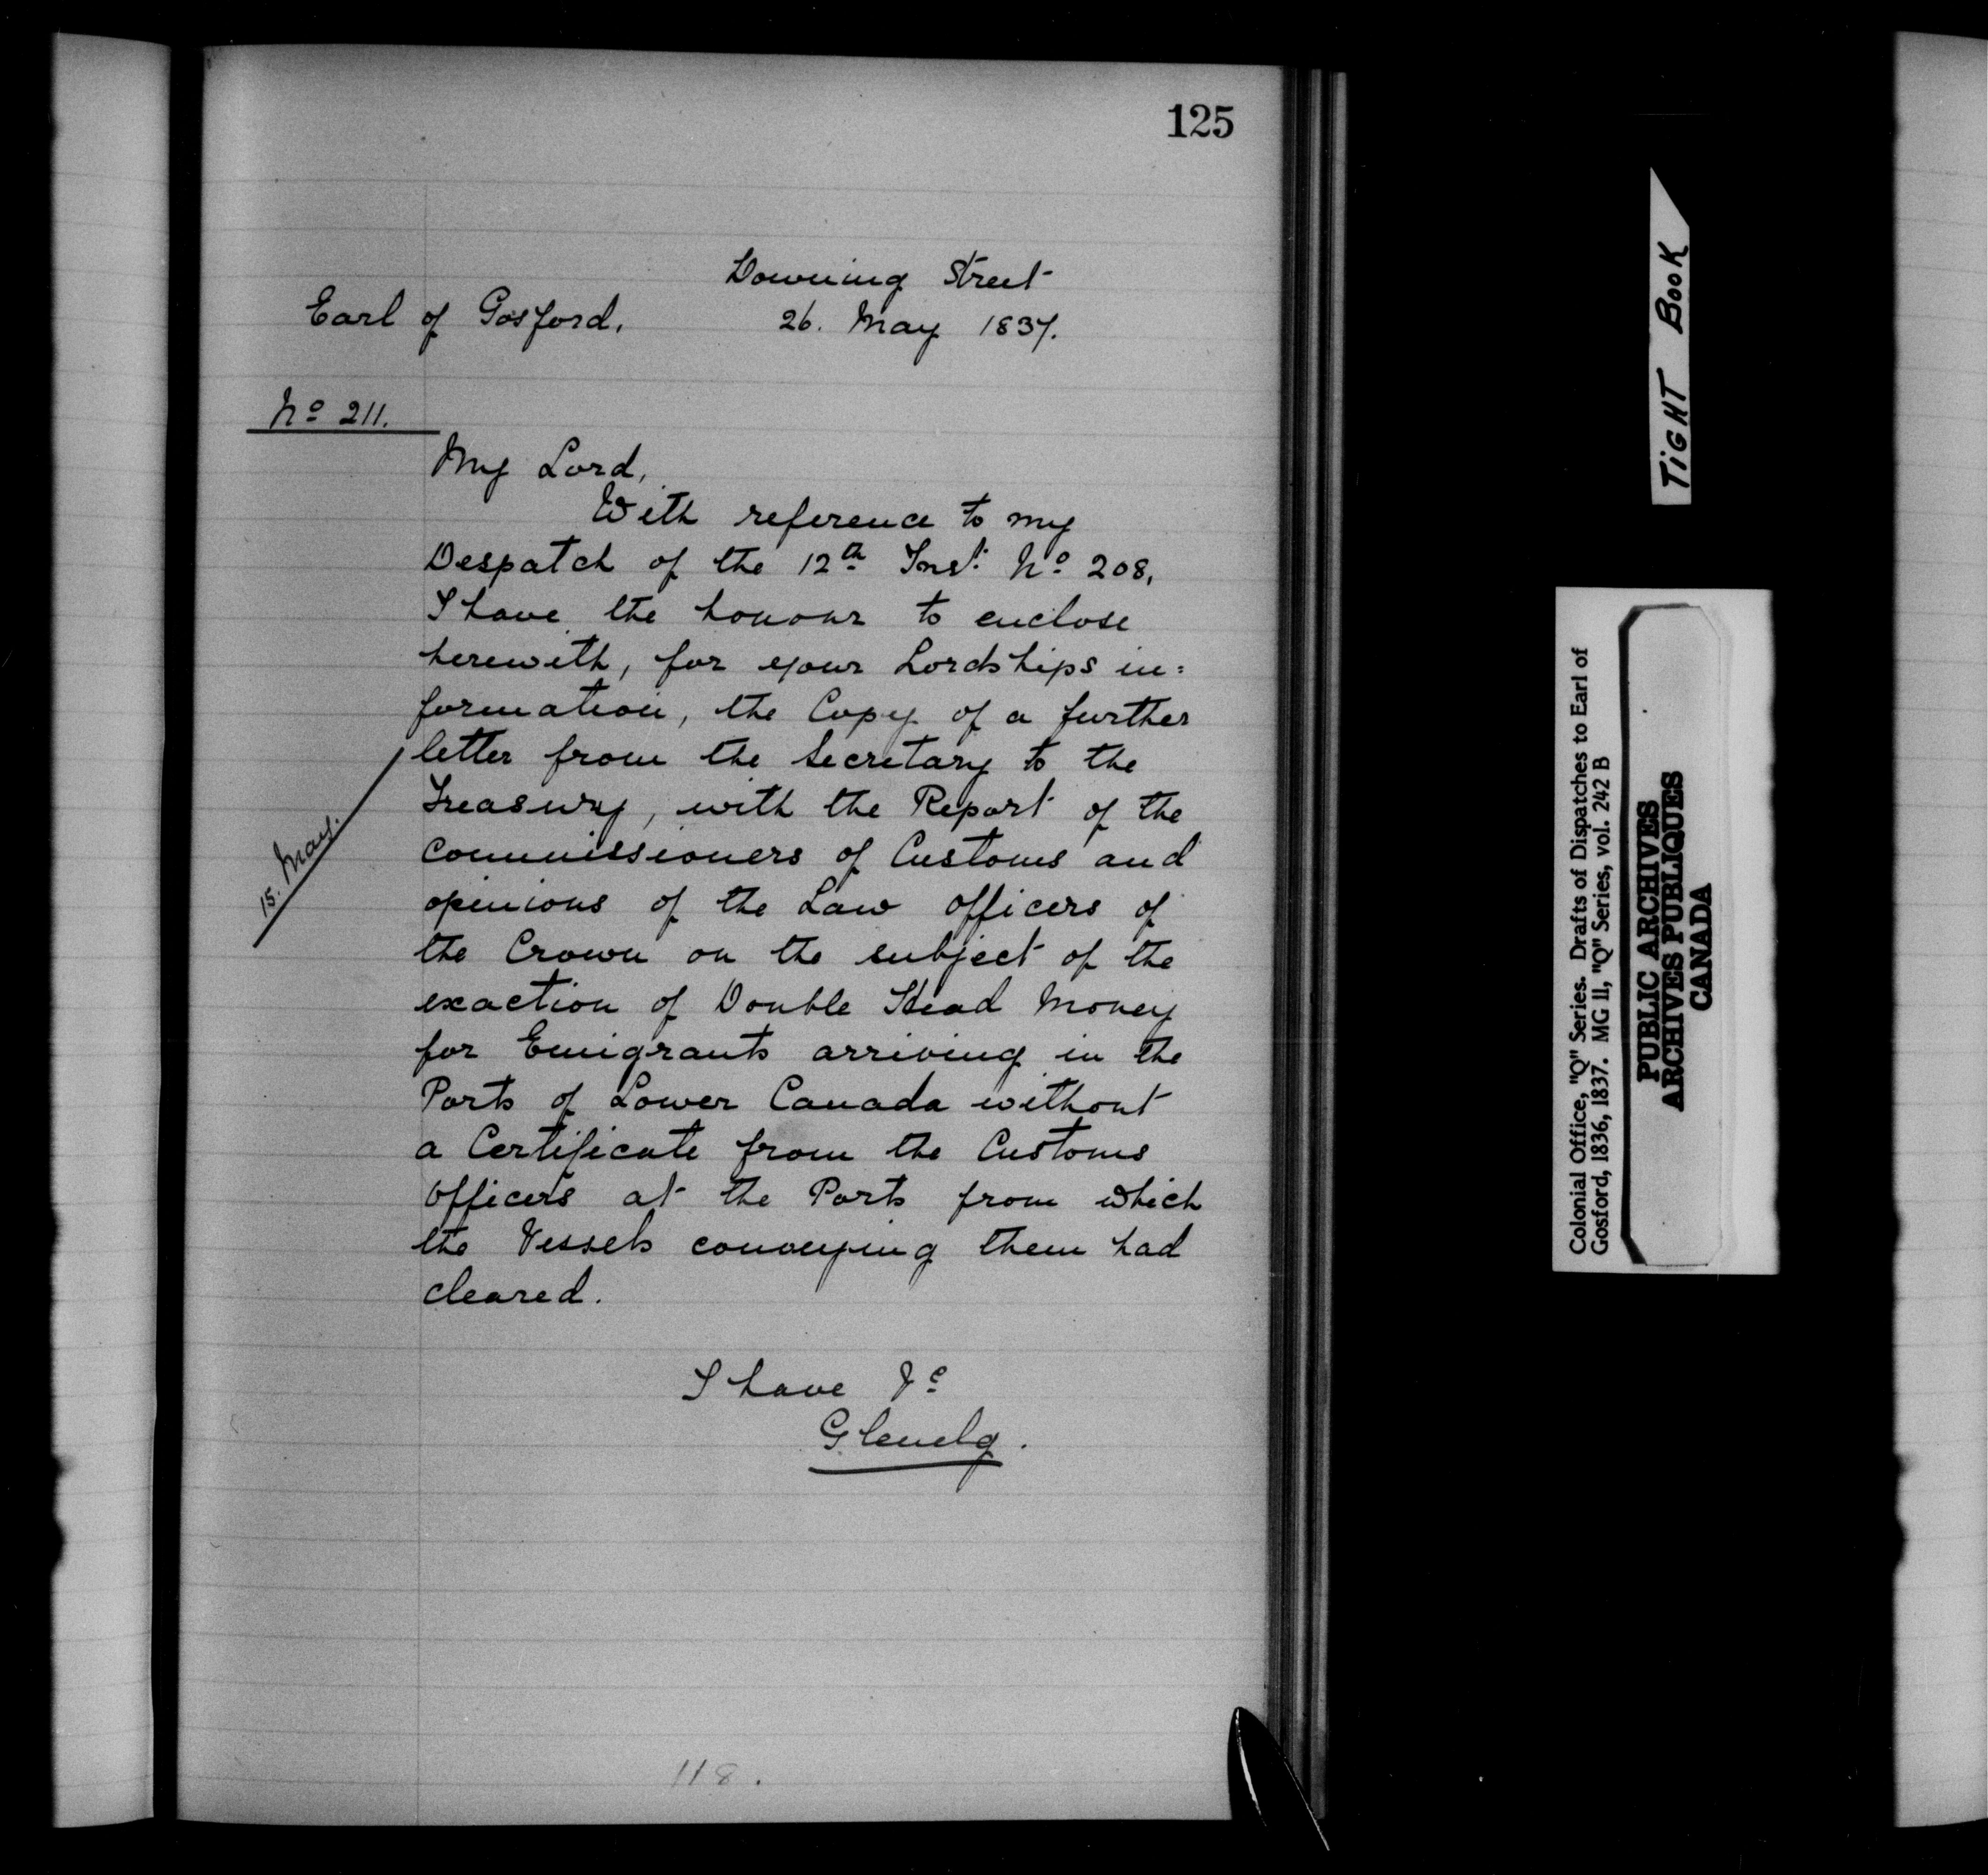 125
Downing Street
Earl of Gosford, 26. May 1837.
No 211.
My Lord,
With reference to my
Despatch of the 12th Inst. No 208,
I have the honour to enclose
herewith, for your Lordships in=
formation, the Copy of a further
letter from the Secretary to the
Treasury, with the Report of the
Commissioners of Customs and
opinions of the Law officers of
the Crown on the subject of the
exaction of Double Head Money
for Emigrants arriving in the
Ports of Lower Canada without
a Certificate from the Customs
Officers at the Ports from which
the Vessels conveying them had
cleared.
15. May.
I have &c
Glenelg.
118.
TIGHT BOOK
Colonial Office, "Q" Series. Drafts of Dispatches to Earl of
Gosford, 1836, 1837. MG 11, "Q" Series, vol. 242 B
PUBLIC ARCHIVES
ARCHIVES PUBLIQUES
CANADA